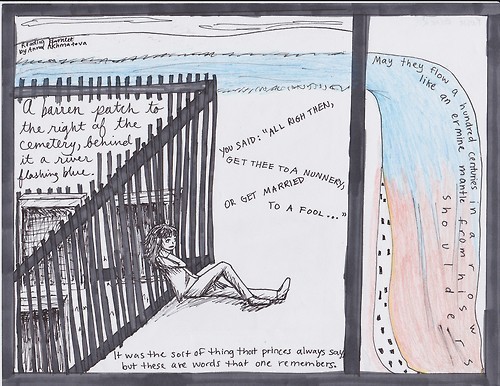 Reading Hamlet
by Anna Akhmatova
A barren patch to
the right of the
cemetery, behind
it a river
flashing blue.
YOU SAID: "ALL RIGH THEN,
GET THEE TO A NUNNERY,
OR GET MARRIED
TO A FOOL..."
It was the sort of thing that princes always say,
but these are words that one remembers.
May they flow a hundred centuries in a row
like an ermine mantle from his
shoulders